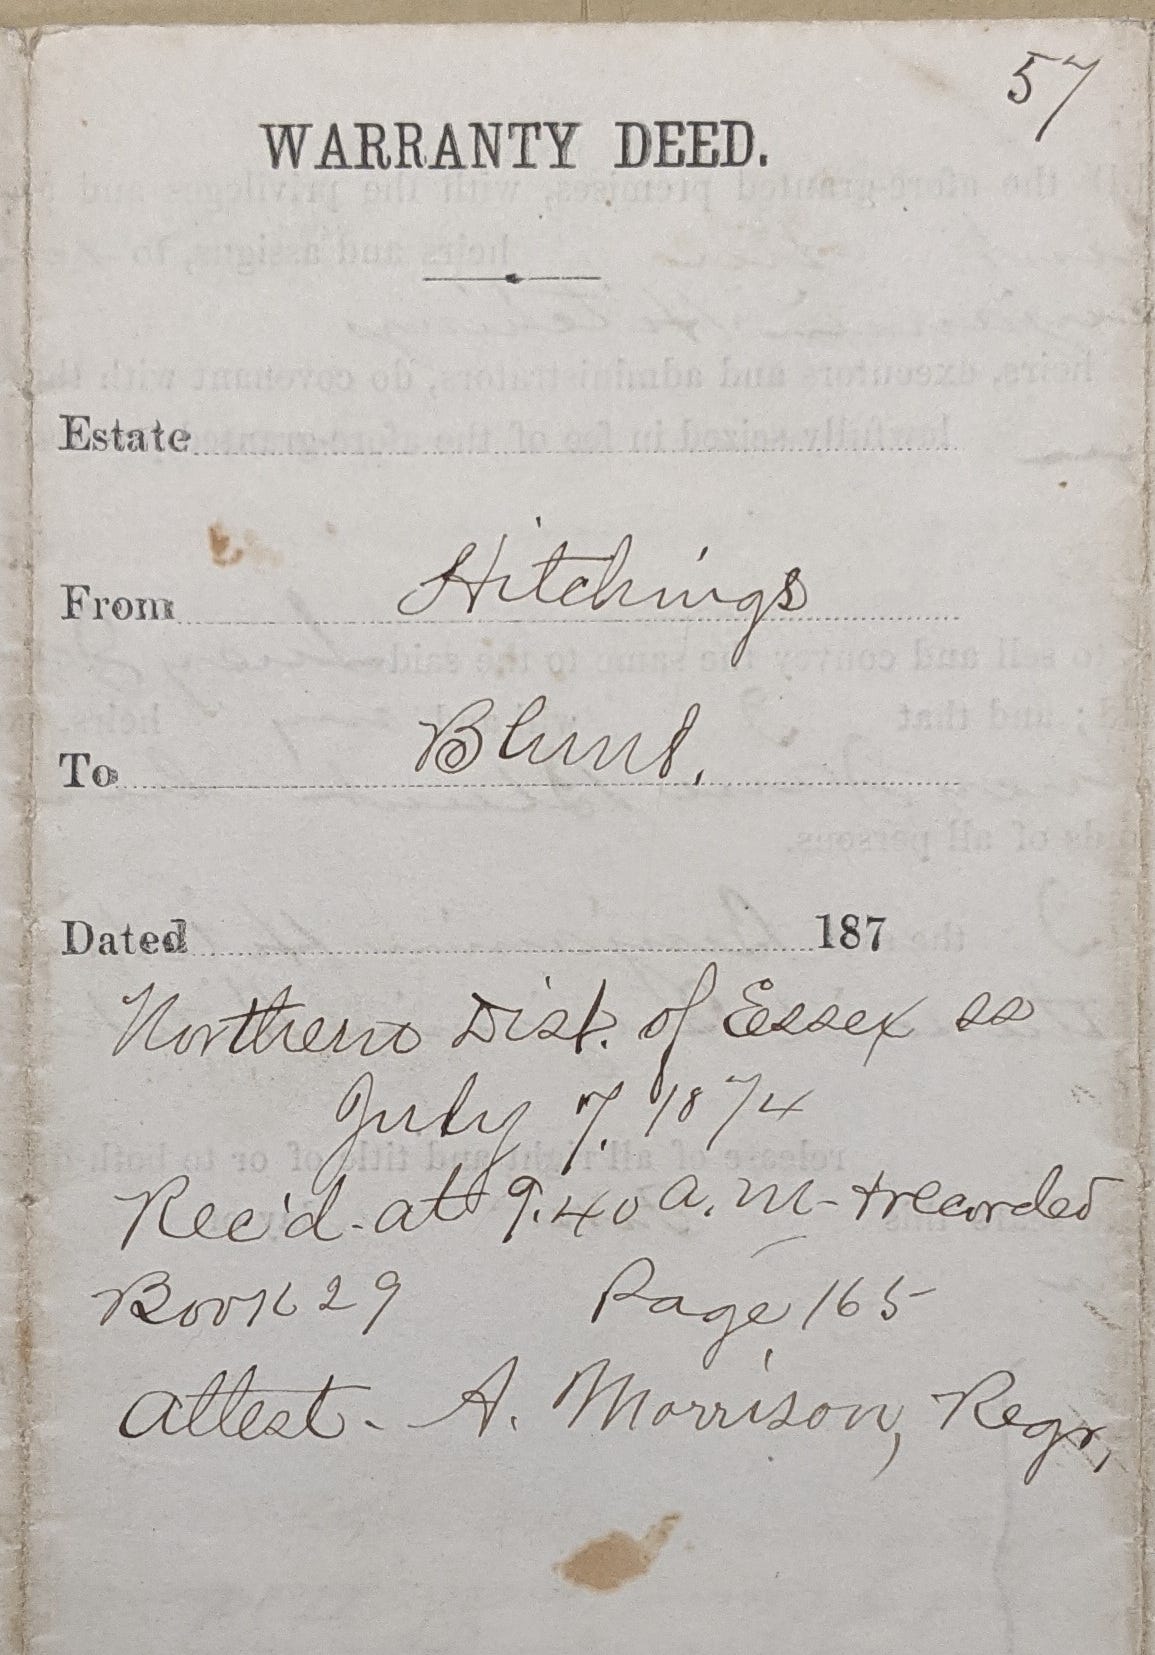 57
WARRANTY DEED.
Estate
From Hitchings
To Blunt.
Dated 187
Northern Dist. of Essex ss
July 7. 1874
Rec'd. at 9.40 a. m - & recorded
Book 29 Page 165
Attest. A. Morrison, Regr,